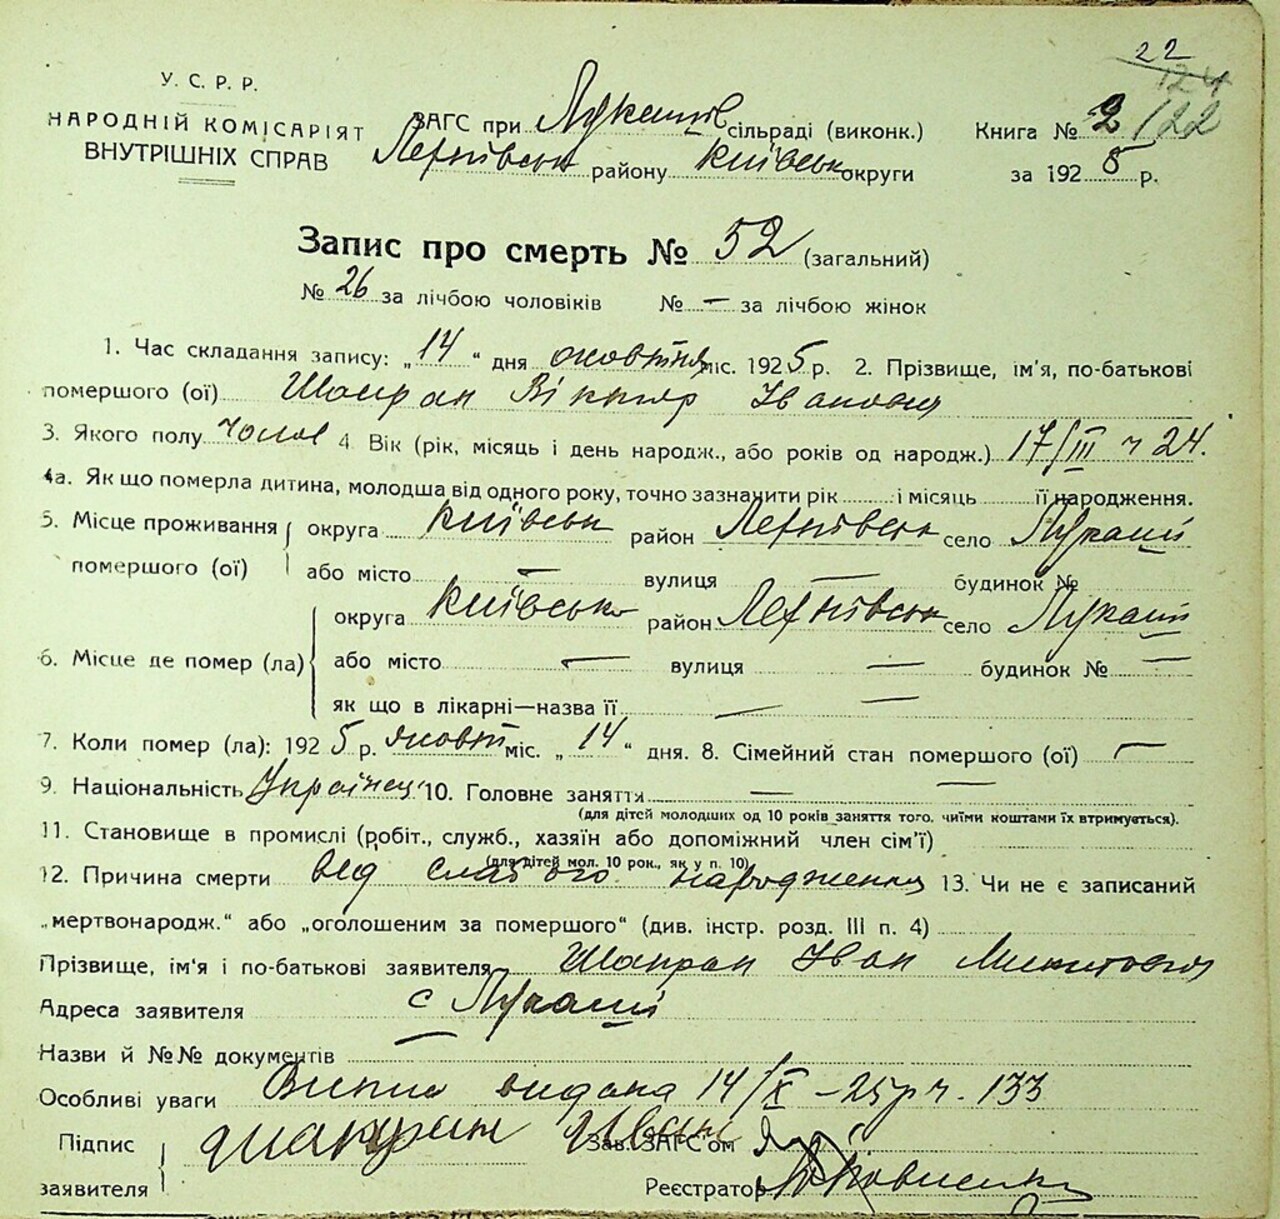 22
124
У. С. Р. Р.
НАРОДНІЙ КОМІСАРІЯТ
ВНУТРІШНІХ СПРАВ
ЗАГС при Лукашів сільраді (виконк.)
районy Київськ округи
Книга № 2 /22
за 1925 р.
Запис про смерть № 52 (загальний)
№ 26 за лічбою чоловіків № — за лічбою жінок
1. Час складання запису: „14“ дня октября міс. 1925 р. 2. Прізвище, ім'я, по-батькові
помершого (ої) Шапран Віктор Іванович
3. Якого полу чолов 4. Вік (рік, місяць і день народж., або років од народж.) 17/III 24.
4а. Як що померла дитина, молодша від одного року, точно зазначити рік і місяць її народження.
5. Місце проживання помершого (ої) округа Київськ район село Лукаші
або місто — вулиця — будинок №
6. Місце де помер (ла) округа Київськ район село Лукаші
або місто — вулиця — будинок № —
як що в лікарні—назва її — —
7. Коли помер (ла): 1925 р. міс. „14“ дня. 8. Сімейний стан помершого (ої) —
9. Національність Українец 10. Головне заняття — —
(для дітей молодших од 10 років заняття того, чиїми коштами їх втримується).
11. Становище в промислі (робіт., служб., хазяїн або допоміжний член сім'ї)
(для дітей мол. 10 рок., як у п. 10)
12. Причина смерти від слабого народження 13. Чи не є записаний
„мертвонародж.“ або „оголошеним за помершого“ (див. інстр. розд. III п. 4)
Прізвище, ім'я і по-батькові заявителя Шапран Іван Микитович
Адреса заявителя с Лукаші
Назви й №№ документів —
Особливі уваги Випис видана 14/X – 25 р ч. 133
Підпис заявителя Шапран Иван
Зав. ЗАГС'ом
Реєстратор